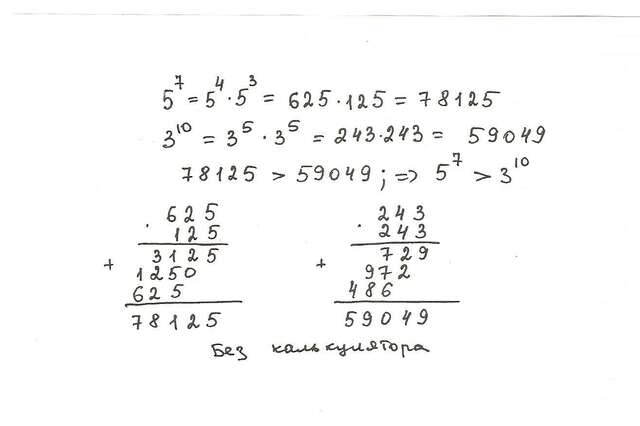 5⁷ = 5⁴ · 5³ = 625 · 125 = 78125
3¹⁰ = 3⁵ · 3⁵ = 243 · 243 = 59049
78125 > 59049 ; => 5⁷ > 3¹⁰
· 625
125
+ 3125
1250
625
78125
· 243
243
+ 729
972
486
59049
Без калькулятора